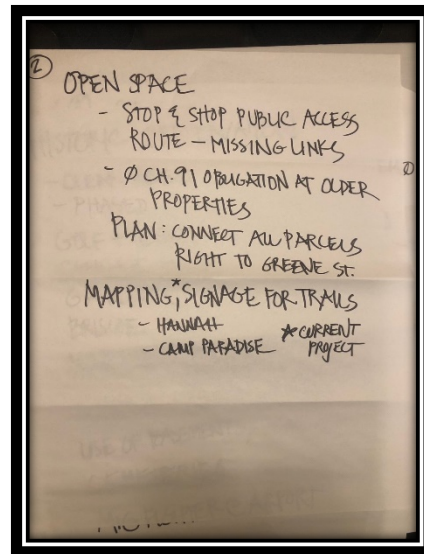 2
OPEN SPACE
- STOP & SHOP PUBLIC ACCESS
ROUTE - MISSING LINKS
- Ø CH. 91 OBLIGATION AT OLDER
PROPERTIES
PLAN: CONNECT ALL PARCELS
RIGHT TO GREENE ST.
MAPPING,* SIGNAGE FOR TRAILS
- HANNAH
- CAMP PARADISE
* CURRENT
PROJECT